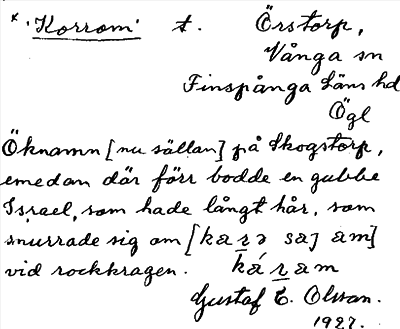 * 'Korrom' t. Örstorp,
Vånga sn
Finspånga Läns hd
Ögl
Öknamn [nu sällan] på Skogstorp,
emedan där förr bodde en gubbe
Israel, som hade långt hår, som
snurrade sig om [kaṟə saj am]
vid rockkragen. káṟam
Gustaf E. Olsson.
1927.